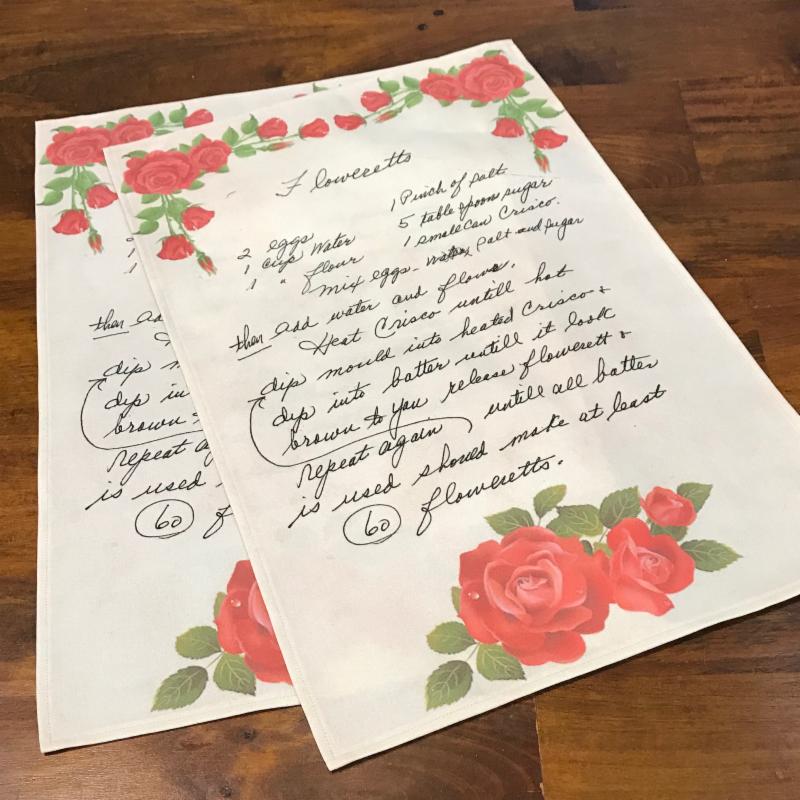 Floweretts
2 eggs 1 Pinch of Salt
1 cup Water 5 table spoon sugar
1 " flour 1 small can Crisco.
mix eggs - Salt and Sugar
then add water and flour.
Heat Crisco untill hot
dip mould into heated Crisco +
dip into batter untill it look
brown to you release flowerett +
repeat again untill all batter
is used should make at least
60 floweretts.
then ad
dip m
dip in
brown
repeat a
is used
60 f